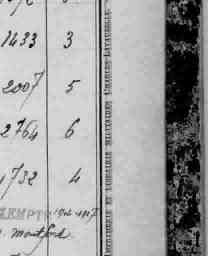 1433 3
2007 5
2764 6
1732 4
EXEMPTÉ
Montfort
IMPRIMERIE ET LIBRAIRIE MILITAIRES CHARLES-LAVAUZELLE.